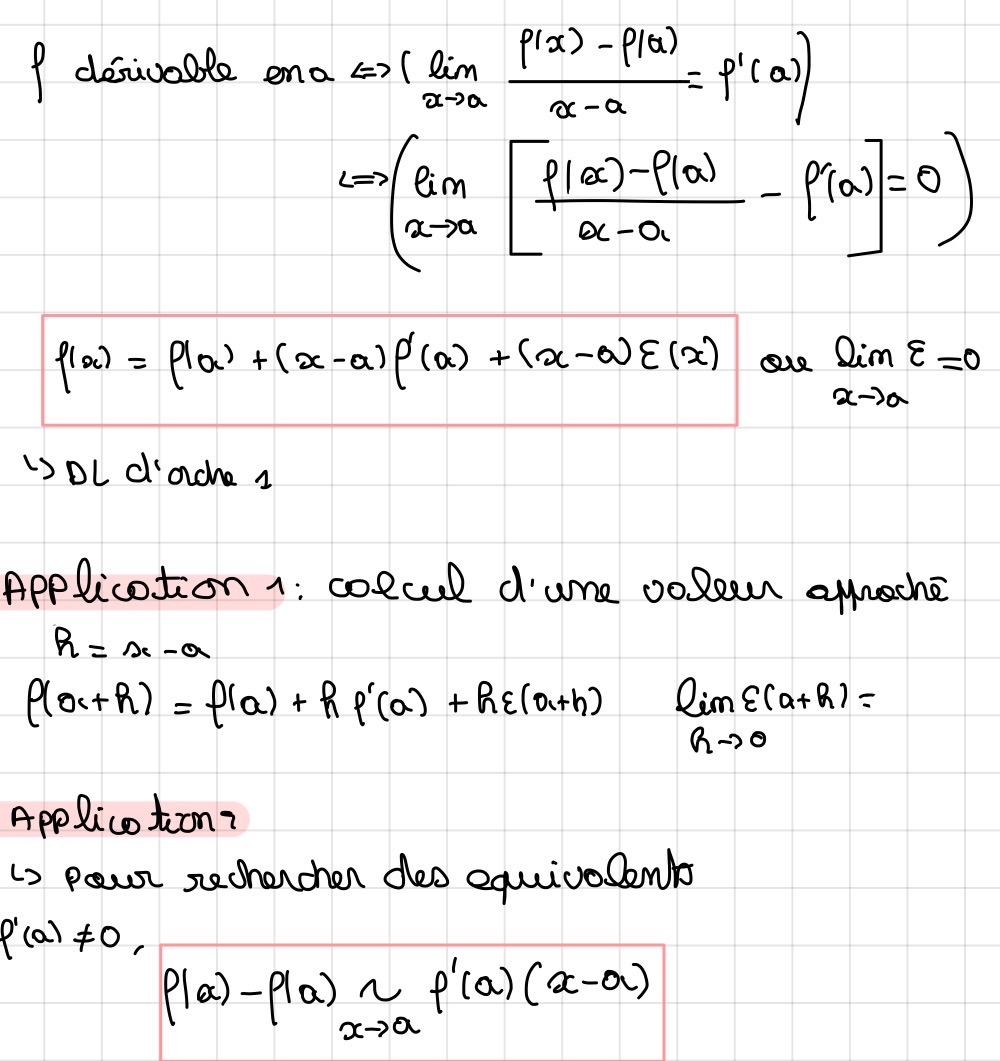 f dérivable en a <=> ( lim x→a (f(x) - f(a))/(x-a) = f'(a) )
<=> ( lim x→a [ (f(x)-f(a))/(x-a) - f'(a) ] = 0 )
f(x) = f(a) + (x-a) f'(a) + (x-a) ε(x) ou lim x→a ε = 0
↳ DL d'ordre 1
Application 1: calcul d'une valeur approché
h = x - a
f(a+h) = f(a) + h f'(a) + hε(a+h) lim h→0 ε(a+h) =
Application 2
↳ pour rechercher des equivalents
f'(a) ≠ 0,
f(x) - f(a) ~ x→a f'(a)(x-a)